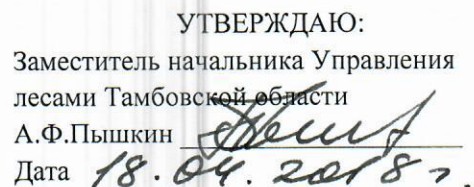 УТВЕРЖДАЮ:
Заместитель начальника Управления
лесами Тамбовской области
А.Ф.Пышкин
Дата 18.04.2018 г.